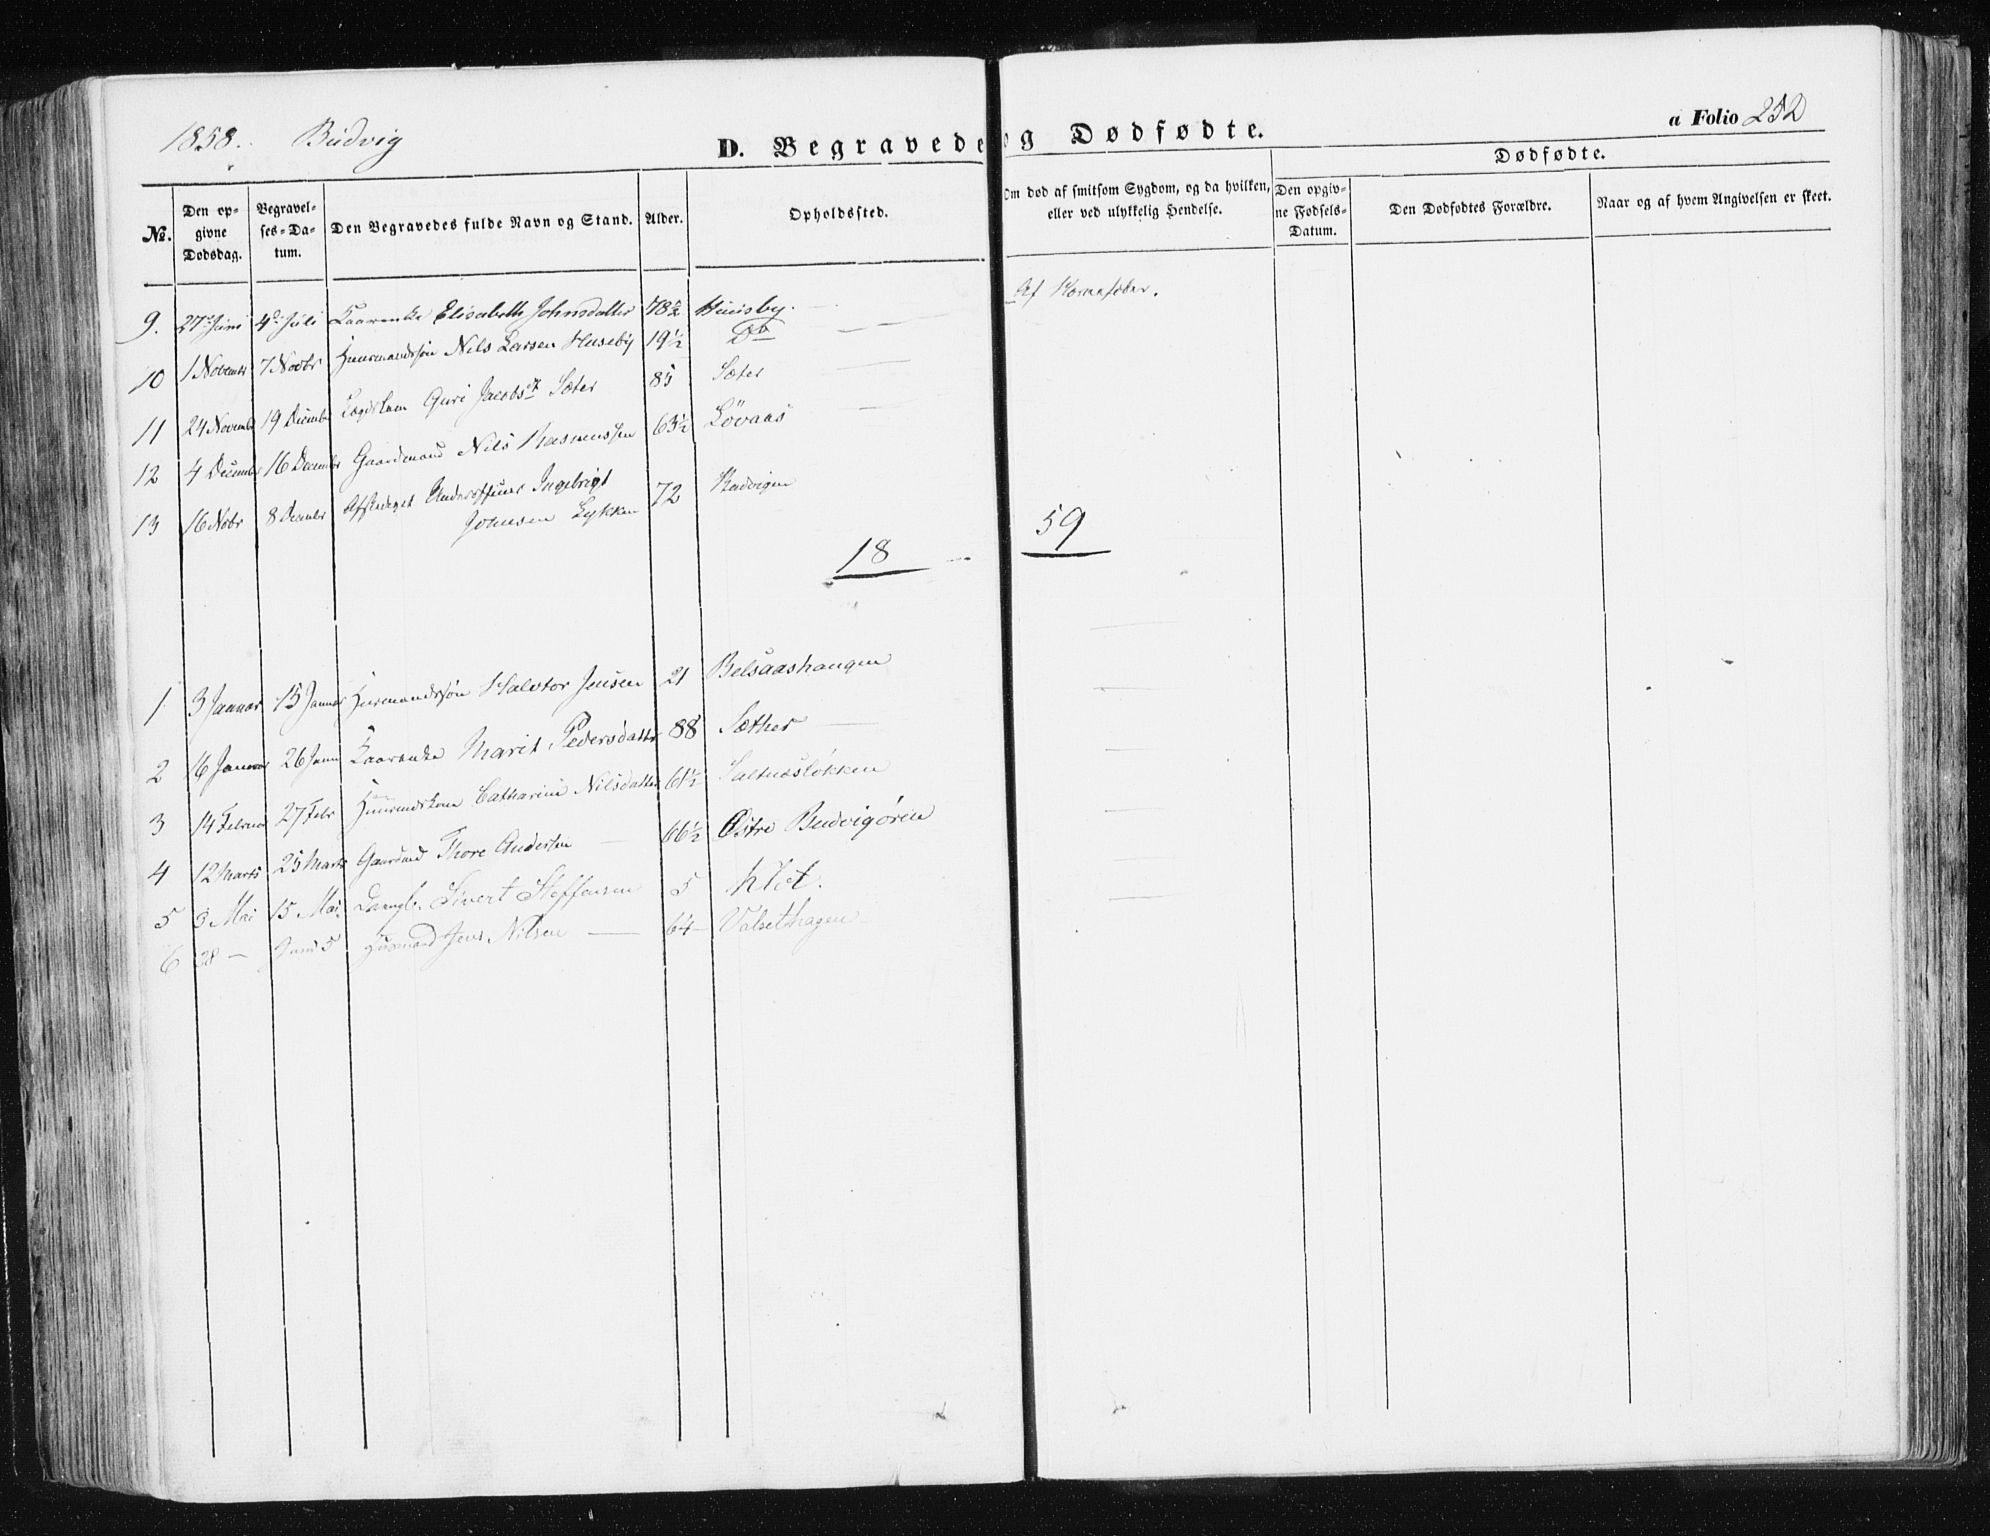 1858. Budvig
D. Begravede og Dødfødte.
a Folio 252
Dødfødte.
No. Den opgivne Dødsdag. Begravelses-Datum. Den Begravedes fulde Navn og Stand. Alder. Opholdssted. Om død af smitsom Sygdom, og da hvilken, eller ved ulykkelig Hendelse. Den opgivne Fødsels-Datum. Den Dødfødtes Forældre. Naar og af hvem Angivelsen er skeet.
9. 27de Juni 4de Juli Kaarenke Elisabeth Johnsdatter 78½ Huusby. Af
10 1 Novembr 7 Novbr Huusmandssøn Nils Larsen Huseby 19½ Do
11 24 Novembr 19 Decembr Lægdskone Guri Jacobsdt Sæter 85 Sæter
12 4 Decembr 16 Decembr Gaardmand Nils Rasmussen 63½ Lövaas
13 16 Novbr 8 Decembr Afskediget Ingebrigt 72 Budvigen
Johnsen Lykken
18 — 59
1 3 Januar 15 Januar Huusmandssøn Halvtor Jensen 21 Belsaashaugen
2 16 Januar 26 Janu Kaarenke Marit Pedersdatter 88 Sæther
3 14 Februar 27 Febr Huusmdskone Catharine Nilsdatter 61½ Saltnesløkken
4 12 Marts 25 Marts Gaardmd Thore Andersen — 66½ Østre Budvigøren
5 3 Mai 15 Mai. Sivert Steffensen 5
6 28 — Juni 5 Huusmand Jens Nilsen — 64 — Valsethagen